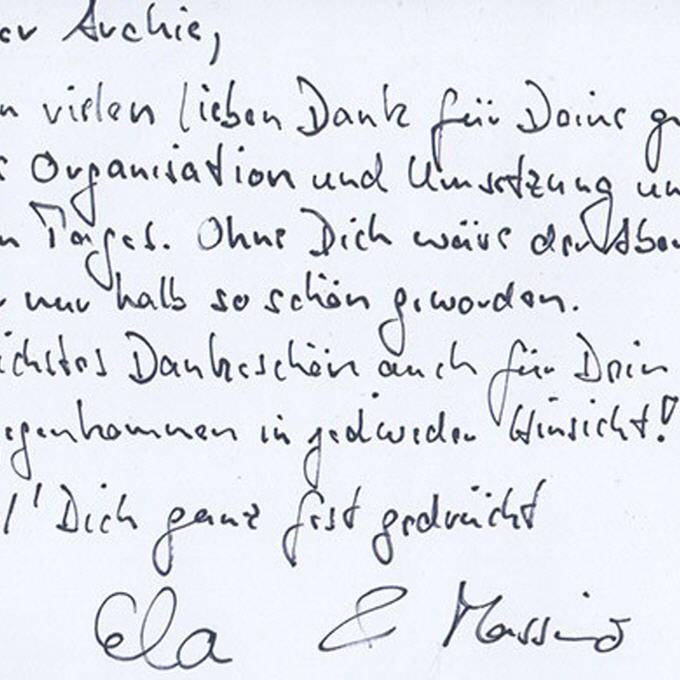 er Archie,
n vielen lieben Dank für Deine g
Organisation und Umsetzung un
n Tages. Ohne Dich wäre der Aben
nur halb so schön geworden.
ichstes Dankeschön auch für Dein
egenkommen in jedweder Hinsicht!
Dich ganz fest gedrückt
Ela & Massimo